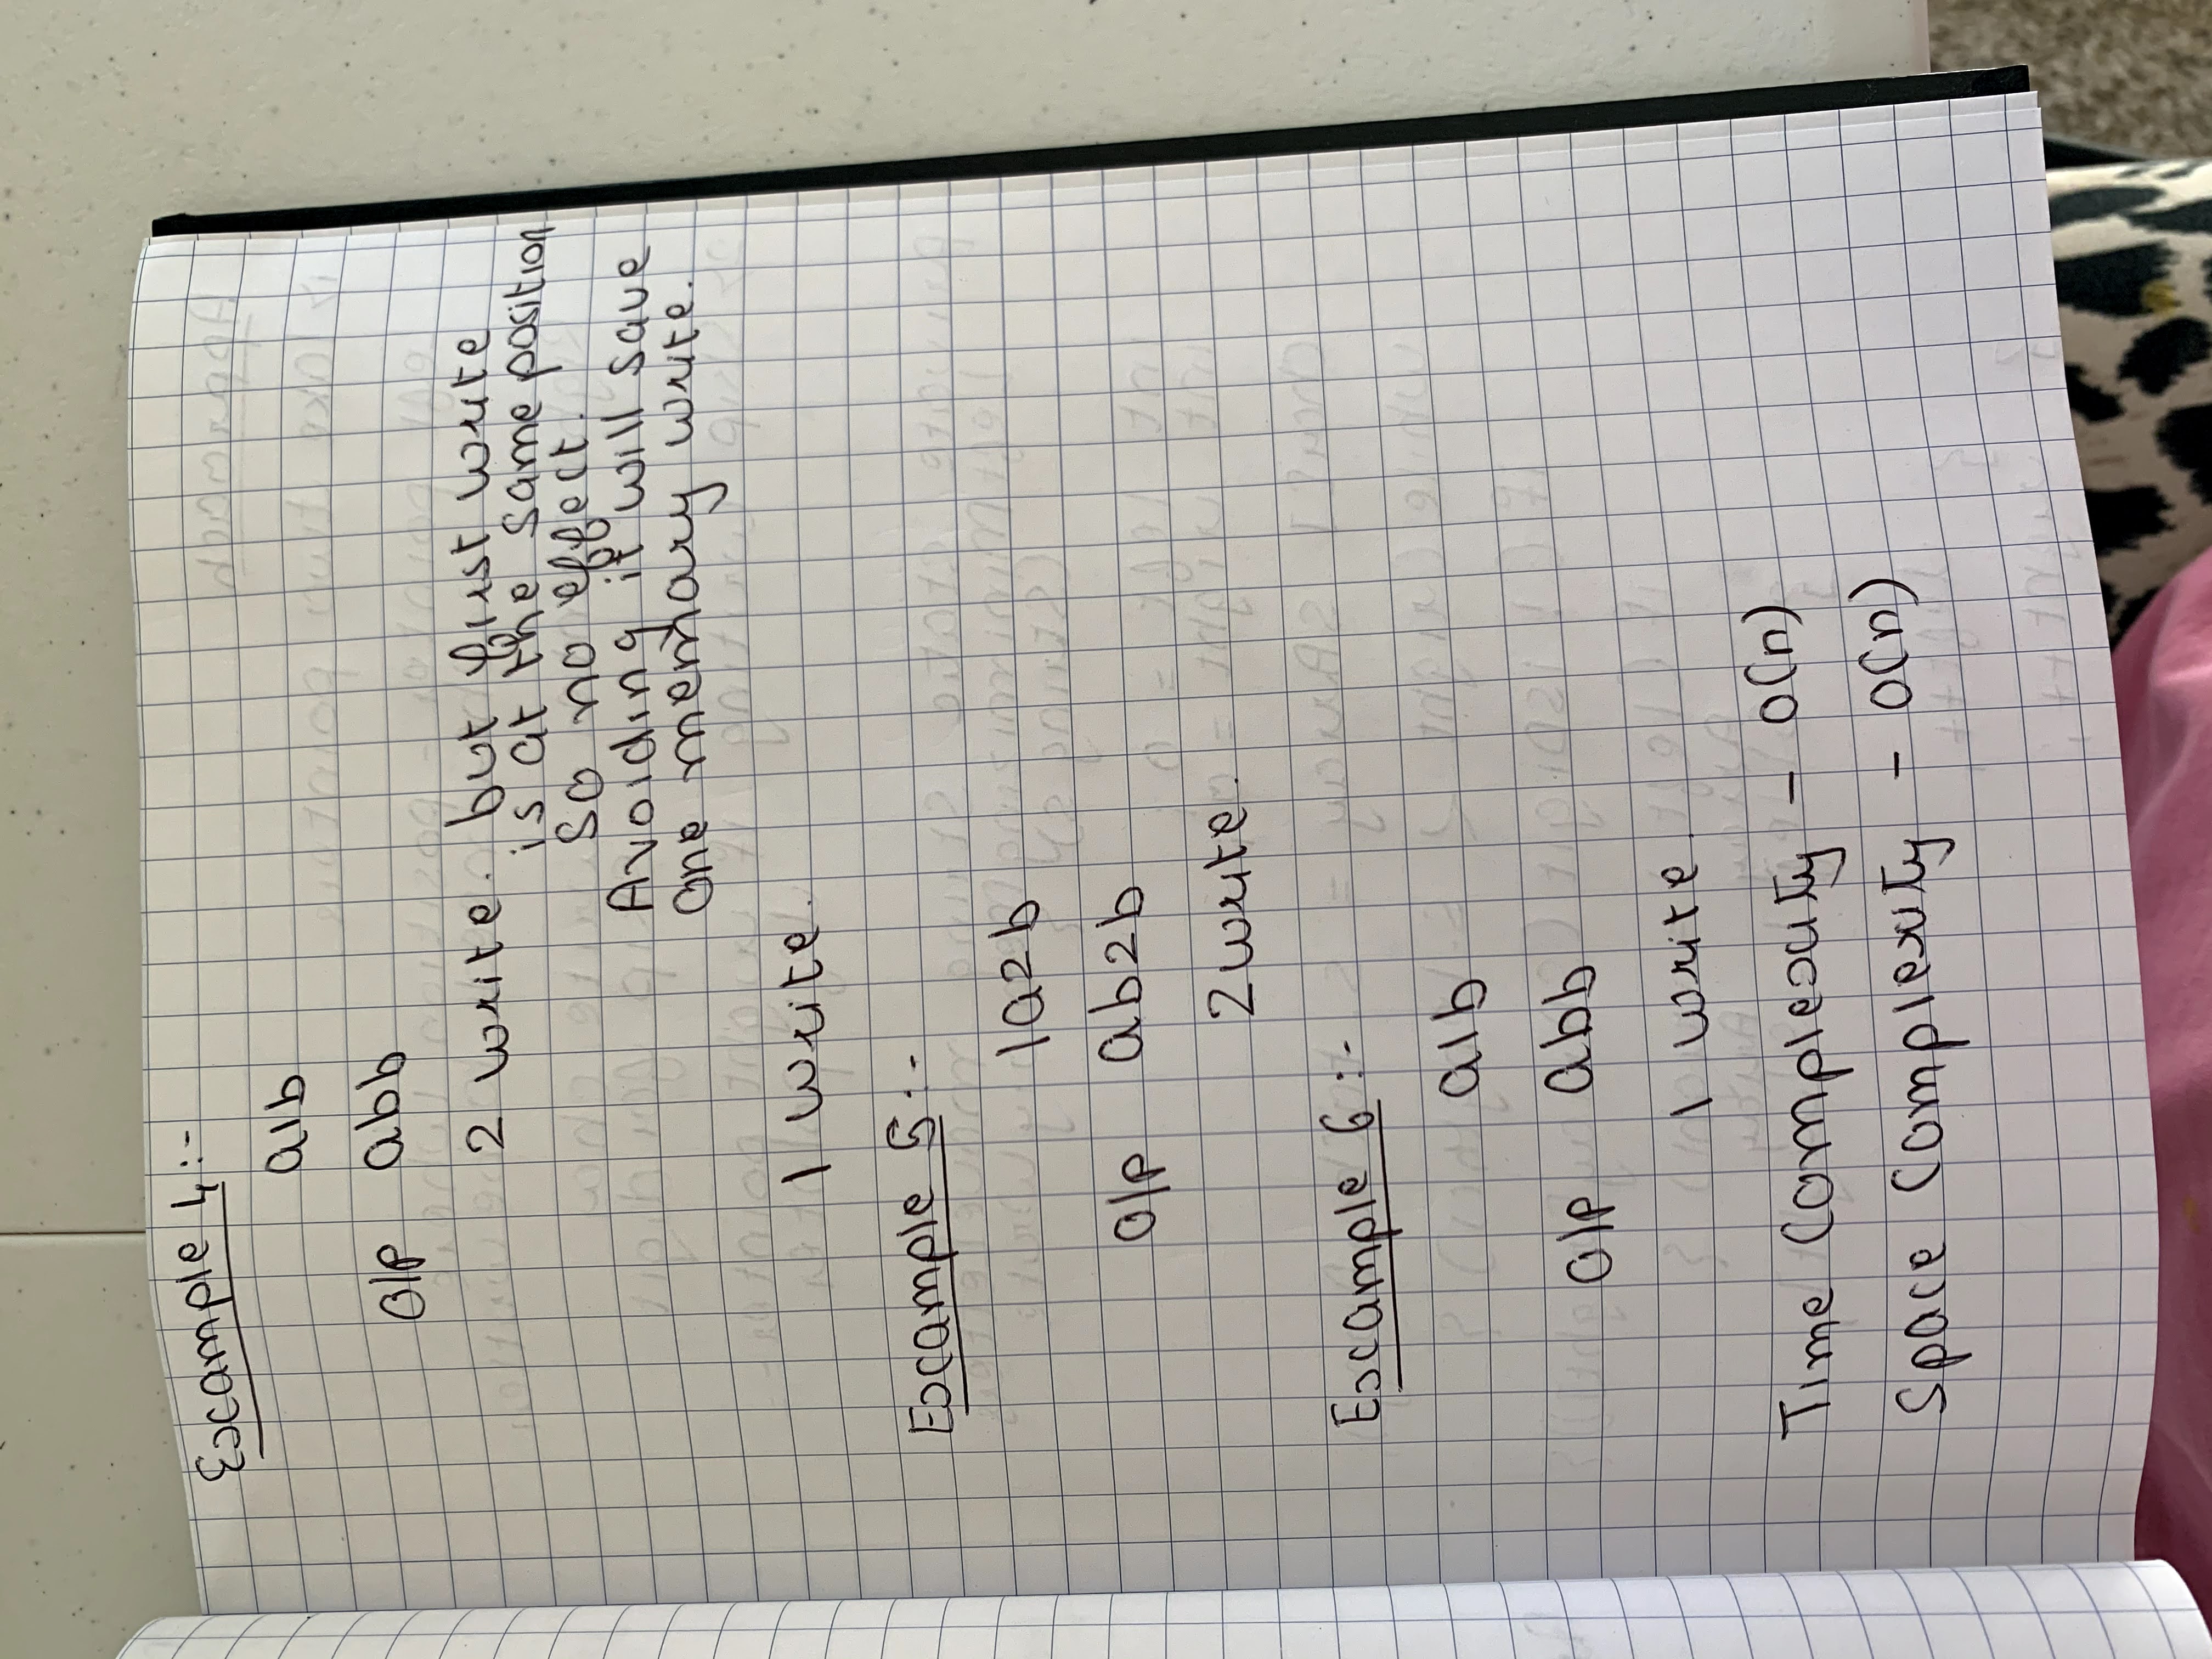 Example 4:-
a1b
O/P abb
2 write. but first write
is at the same position
so no effect.
Avoiding it will save
one memary write.
1 write.
Example 5:-
1a2b
O/P ab2b
2 write.
Example 6:-
a1b
O/P abb
1 write
Time Complexity - O(n)
Space Complexity - O(n)